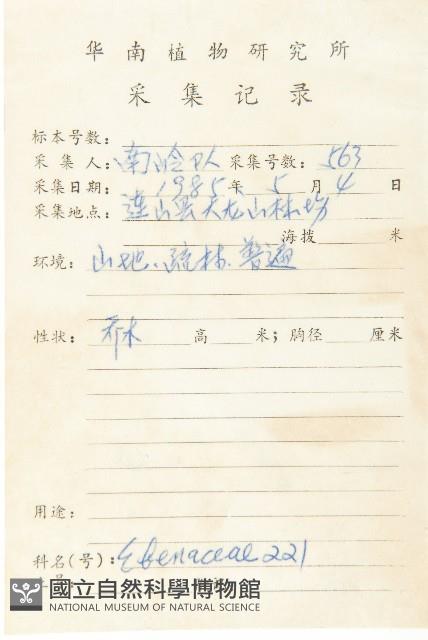 华南植物研究所
采集记录
标本号数：
采集人：南岭队 采集号数：563
采集日期：1985年5月4日
采集地点：连山县大龙山林场
海拨 米
环境：山地、疏林、普遍
性状：乔木 高 米；胸径 厘米
用途：
科名(号)：Ebenaceae 221
國立自然科學博物館
NATIONAL MUSEUM OF NATURAL SCIENCE